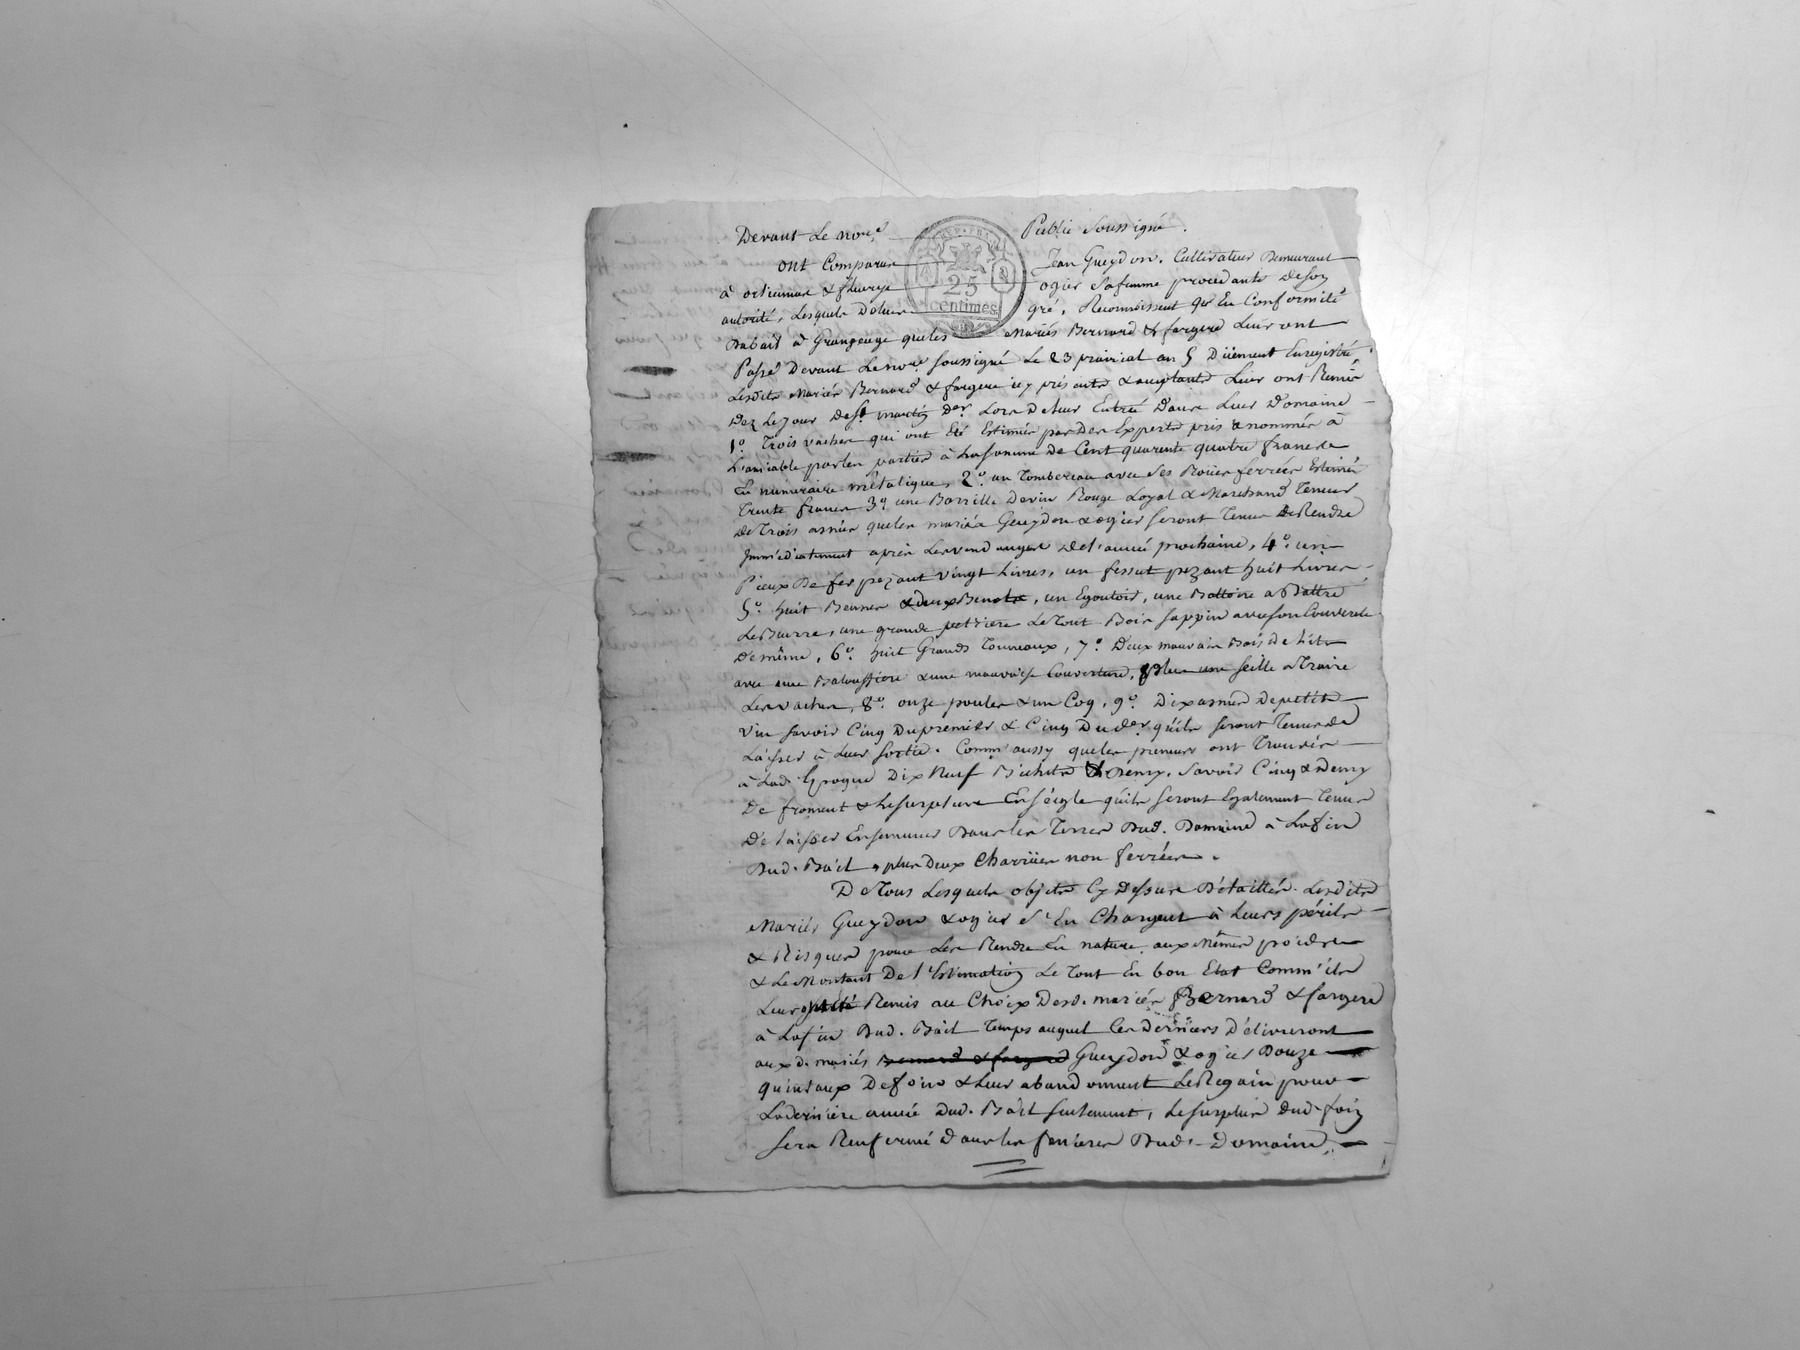 Devant Le no.re Public Soussigné.
ont Comparu Jean Gueydon, Cultivateur Demeurant
à & fleurye ogier Safemme procedante deson
autorité, Lesquels Deleur gré, Reconnoissent qu'En Conformité
Dubail à Grangeage queles Mariés Bernard & fargere Leur ont
Passé Devant Leno.re Soussigné Le 23 prairial an 5 Düement Enregistré,
Lesdits Mariés Bernard & fargere icy présents & acceptants Leur ont Remis
Dez Lejour deSt. martin der. Lors deleur Entrée Dans Leur Domaine
1.o Trois vaches qui ont Eté Estimés par Des Experts pris & nommés à
L'amiable parles parties à Lasomme de Cent quarente quatre francs
En numéraire métalique, 2.o un Tombereau avec Ses Roües ferrées Estimé
Trente francs 3.o une Barrille Devin Rouge Loyal & Marchand Teneur
de Trois asnées queles mariés Gueydon & ogier Seront Tenus De Rendre
Immédiatement après Lesvendanges del'année prochaine, 4.o un
Pieux De fer pezant vingt Livres, un fessut pezant huit Livres
5.o huit Bennes & deux Benots, un Egoutoir, une Battoire a Battre
LeBeurre, une grande Le Tout Bois Sappin avec son Couvercle
De même, 6.o huit Grands Tonneaux, 7.o Deux mauvais Bois De Lits
avec une Baloussiere & une mauvaise Couverture, plus une Seille a Traire
Les vaches, 8.o onze poules & un Coq, 9.o Dix asnées Depetit
vin Savoir Cinq Dupremier & Cinq Dud.er qu'ils Seront Tenus de
Laisser à Leur Sortie. Comm'aussy queles preneurs ont Trouvés
à Lad. Epoque Dix Neuf Bichets & Demy, Savoir Cinq & Demy
De froment & Lesurplus En Séigle qu'ils Seront Egalement Tenus
De laisser Ensemencés Dans les Terres Dud. Domaine à Lafin
Dud. Bail, plus Deux Charrües non ferrées.
De Tous Lesquels objets Cy Dessus Détaillés Lesdits
Mariés Gueydon & ogier S'En Chargent à Leurs périls
& Risques pour Les Rendre En nature aux Mêmes poids
& Le Montant De l'Estimation Le Tout En bon Etat Comm'ils
Leur Remis au Choix Desd. mariés Bernard & fargere
à Lafin Dud. Bail Temps auquel Ces Derniers Délivreront
aux d. mariés Bernard & fargere Gueydon & ogier Douze
quintaux Defoin & Leur abandonnent LeRegain pour
Ladernière année Dud. Bail Seulement, Lesurplus Dud. foin
Sera Renfermé Dans les fenieres Dud. Domaine,
REP. FRA.
25
centimes